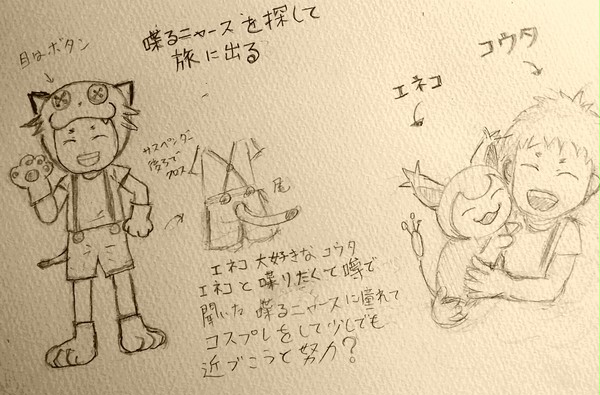 喋るニャースを探して
旅に出る
目はボタン
サスペンダー
後ろで
クロス
尾
コウタ
エネコ
エネコ大好きなコウタ
エネコと喋りたくて噂で
聞いた喋るニャースに憧れて
コスプレをして少しでも
近づこうと努力?